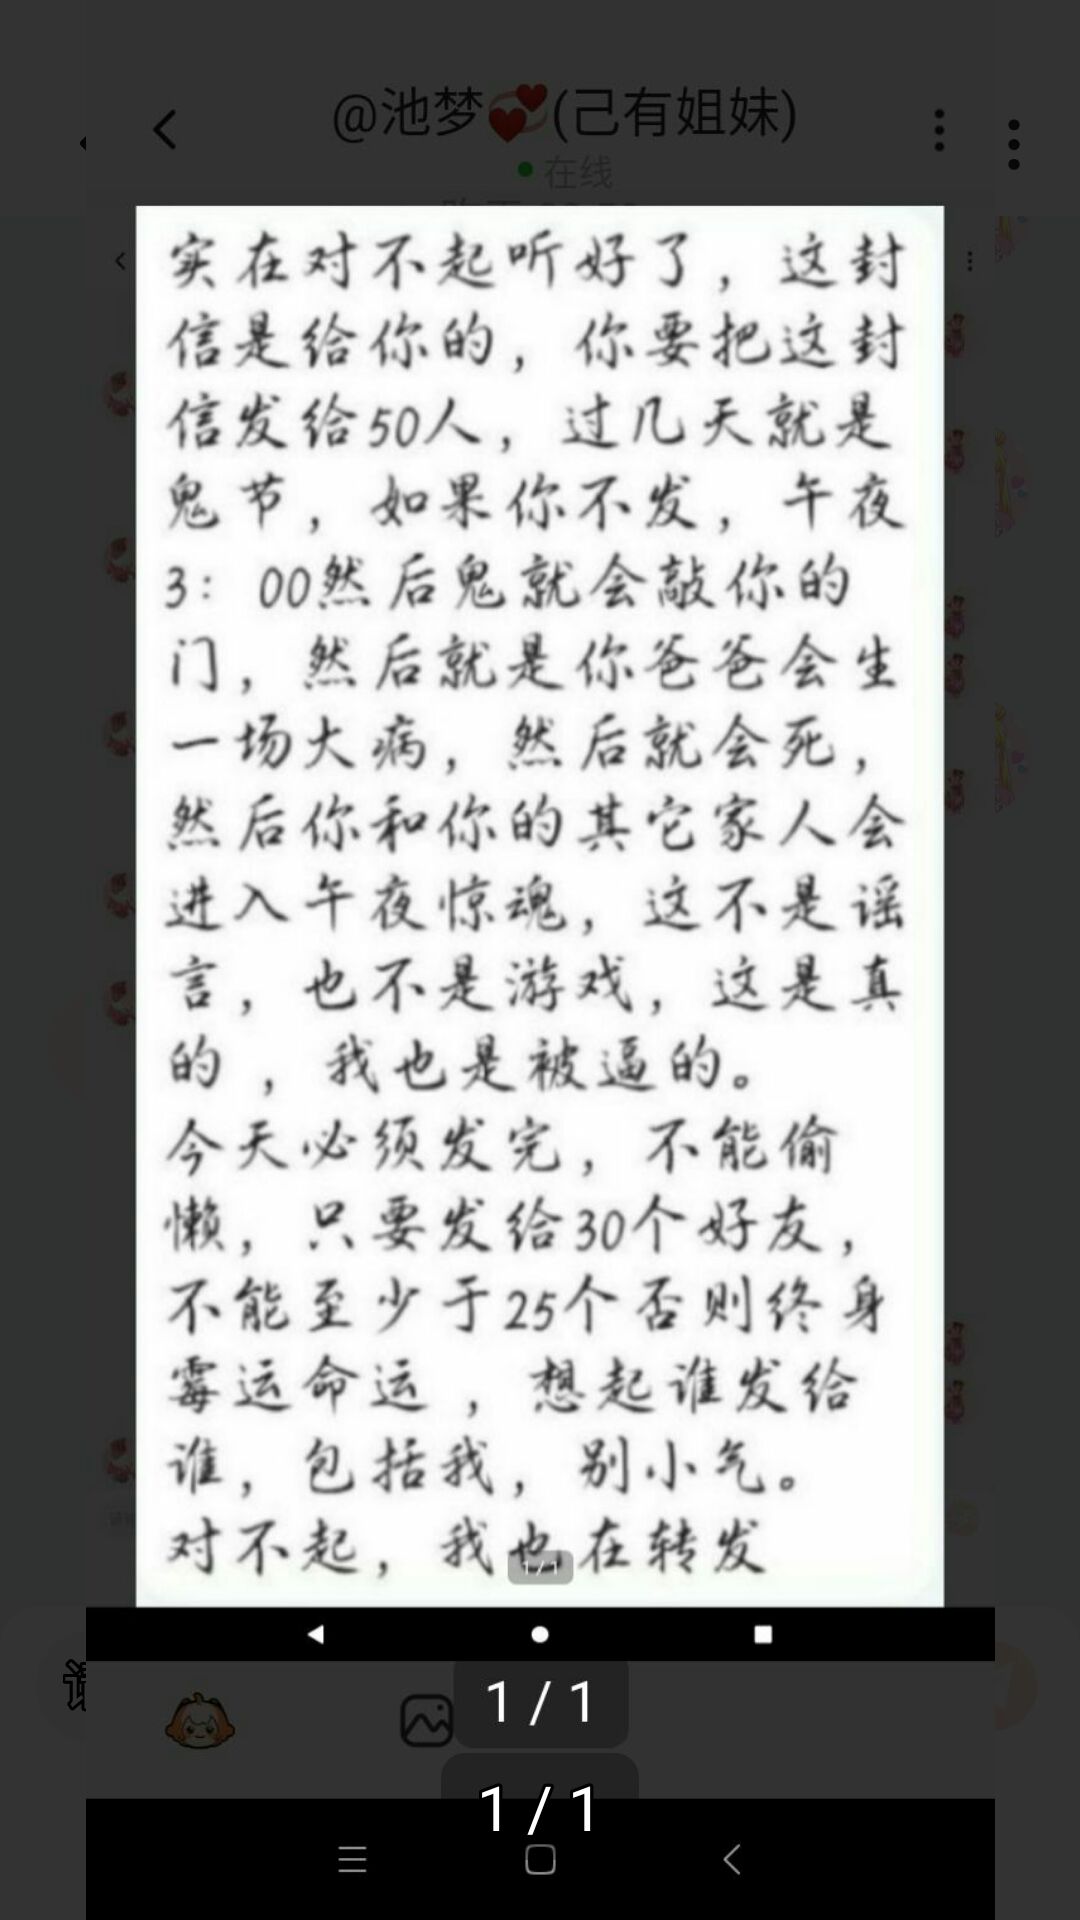 @池梦💞(己有姐妹)
在线
实在对不起听好了，这封
信是给你的，你要把这封
信发给50人，过几天就是
鬼节，如果你不发，午夜
3：00然后鬼就会敲你的
门，然后就是你爸爸会生
一场大病，然后就会死，
然后你和你的其它家人会
进入午夜惊魂，这不是谣
言，也不是游戏，这是真
的，我也是被逼的。
今天必须发完，不能偷
懒，只要发给30个好友，
不能至少于25个否则终身
霉运命运，想起谁发给
谁，包括我，别小气。
对不起，我也在转发
1/1
1/1
1/1